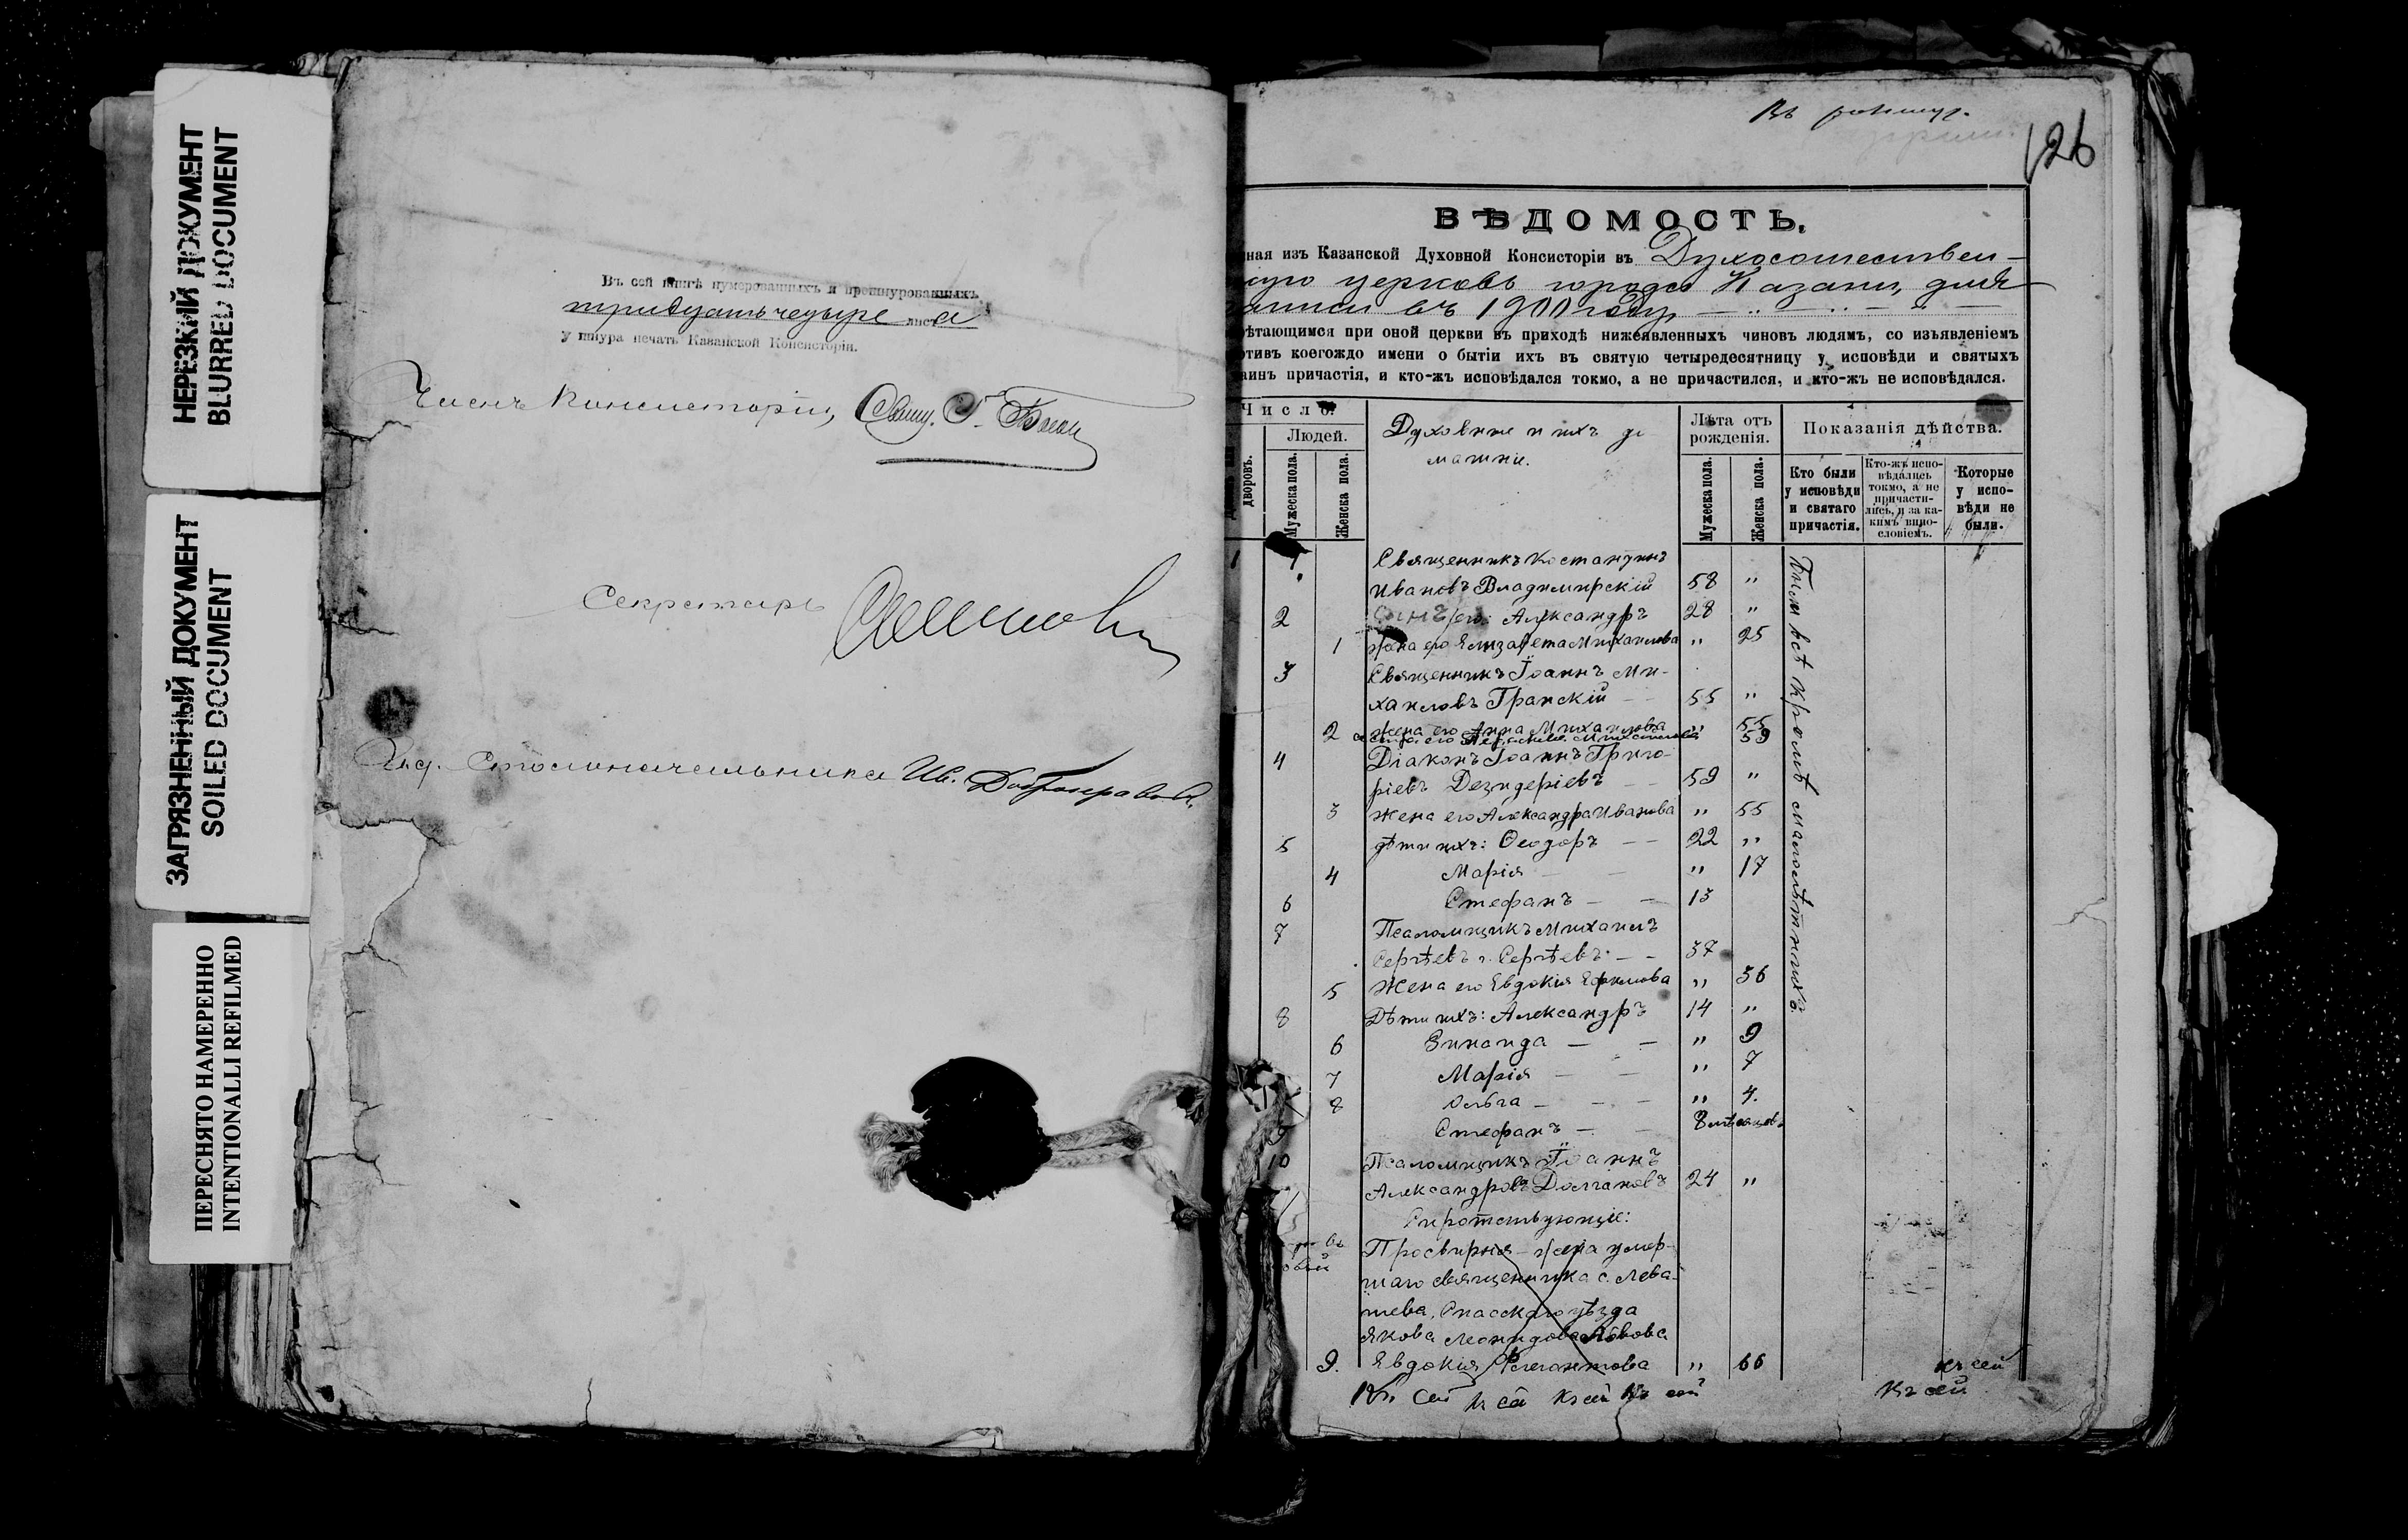 НЕРЕЗКИЙ ДОКУМЕНТ
BLURRED DOCUMENT
ЗАГРЯЗНЕННЫЙ ДОКУМЕНТ
SOILED DOCUMENT
ПЕРЕСНЯТО НАМЕРЕННО
INTENTIONALLI REFILMED
Въ сей книгѣ нумерованныхъ и прошнурованныхъ
тридцать четыре листа
у шнура печать Казанской Консисторіи.
Членъ Консисторіи, Свящ.
Секретарь
Столоначальника Ив. Добронравовъ
126
ВѢДОМОСТЬ,
ная изъ Казанской Духовной Консисторіи въ Духосошествен-
церковь города Казани, для
записи въ 1900 году
ѣтающимся при оной церкви въ приходѣ нижеявленныхъ чиновъ людямъ, со изъявленіемъ
отивъ коегождо имени о бытіи ихъ въ святую четыредесятницу у исповѣди и святыхъ
аинъ причастія, и кто-жъ исповѣдался токмо, а не причастился, и кто-жъ не исповѣдался.
Число.
Людей.
дворовъ.
Мужеска пола.
Женска пола.
Духовные и ихъ до
машніе.
Лѣта отъ рожденія.
Мужеска пола.
Женска пола.
Показанія дѣйства.
Кто были у исповѣди и святаго причастія.
Кто-жъ исповѣдались токмо, а не причастились, и за какимъ винословіемъ.
Которые у исповѣди не были.
1 1 Священникъ Костантинъ
Ивановъ Владимирскій 58 "
2 Сынъ его: Александръ 28 "
1 Жена его Елизавета Михаилова " 25
3 Священникъ Іоаннъ Ми-
хаиловъ Гранскій 55 "
2 Жена его Анна Михаилова " 55
сестра его Михаилова 59
4 Діаконъ Іоаннъ Григо-
ріевъ Дезидеріевъ 59 "
3 Жена его Александра Иванова " 55
5 дѣти ихъ: Ѳеодоръ — — 22 "
4 Марія — — " 17
6 Стефанъ — — 13
7 Псаломщикъ Михаилъ
Сергѣевъ Сергѣевъ — — 37
5 Жена его Евдокія Ефимова " 36
8 Дѣти ихъ: Александръ 14 "
6 Зинаида — — " 9
7 Марія — — " 7
8 Ольга — — " 4.
9 Стефанъ — — 8 мѣсяцевъ
10 Псаломщикъ Іоаннъ
Александровъ Долгановъ 24 "
Сиротствующіе:
Просвирня — жена умер-
шаго священника с. Лева-
шева, Спасскаго уѣзда
Якова Леонидова
9. Евдокія " 66
Были всѣ кромѣ малолѣтнихъ.
къ сей
къ сей